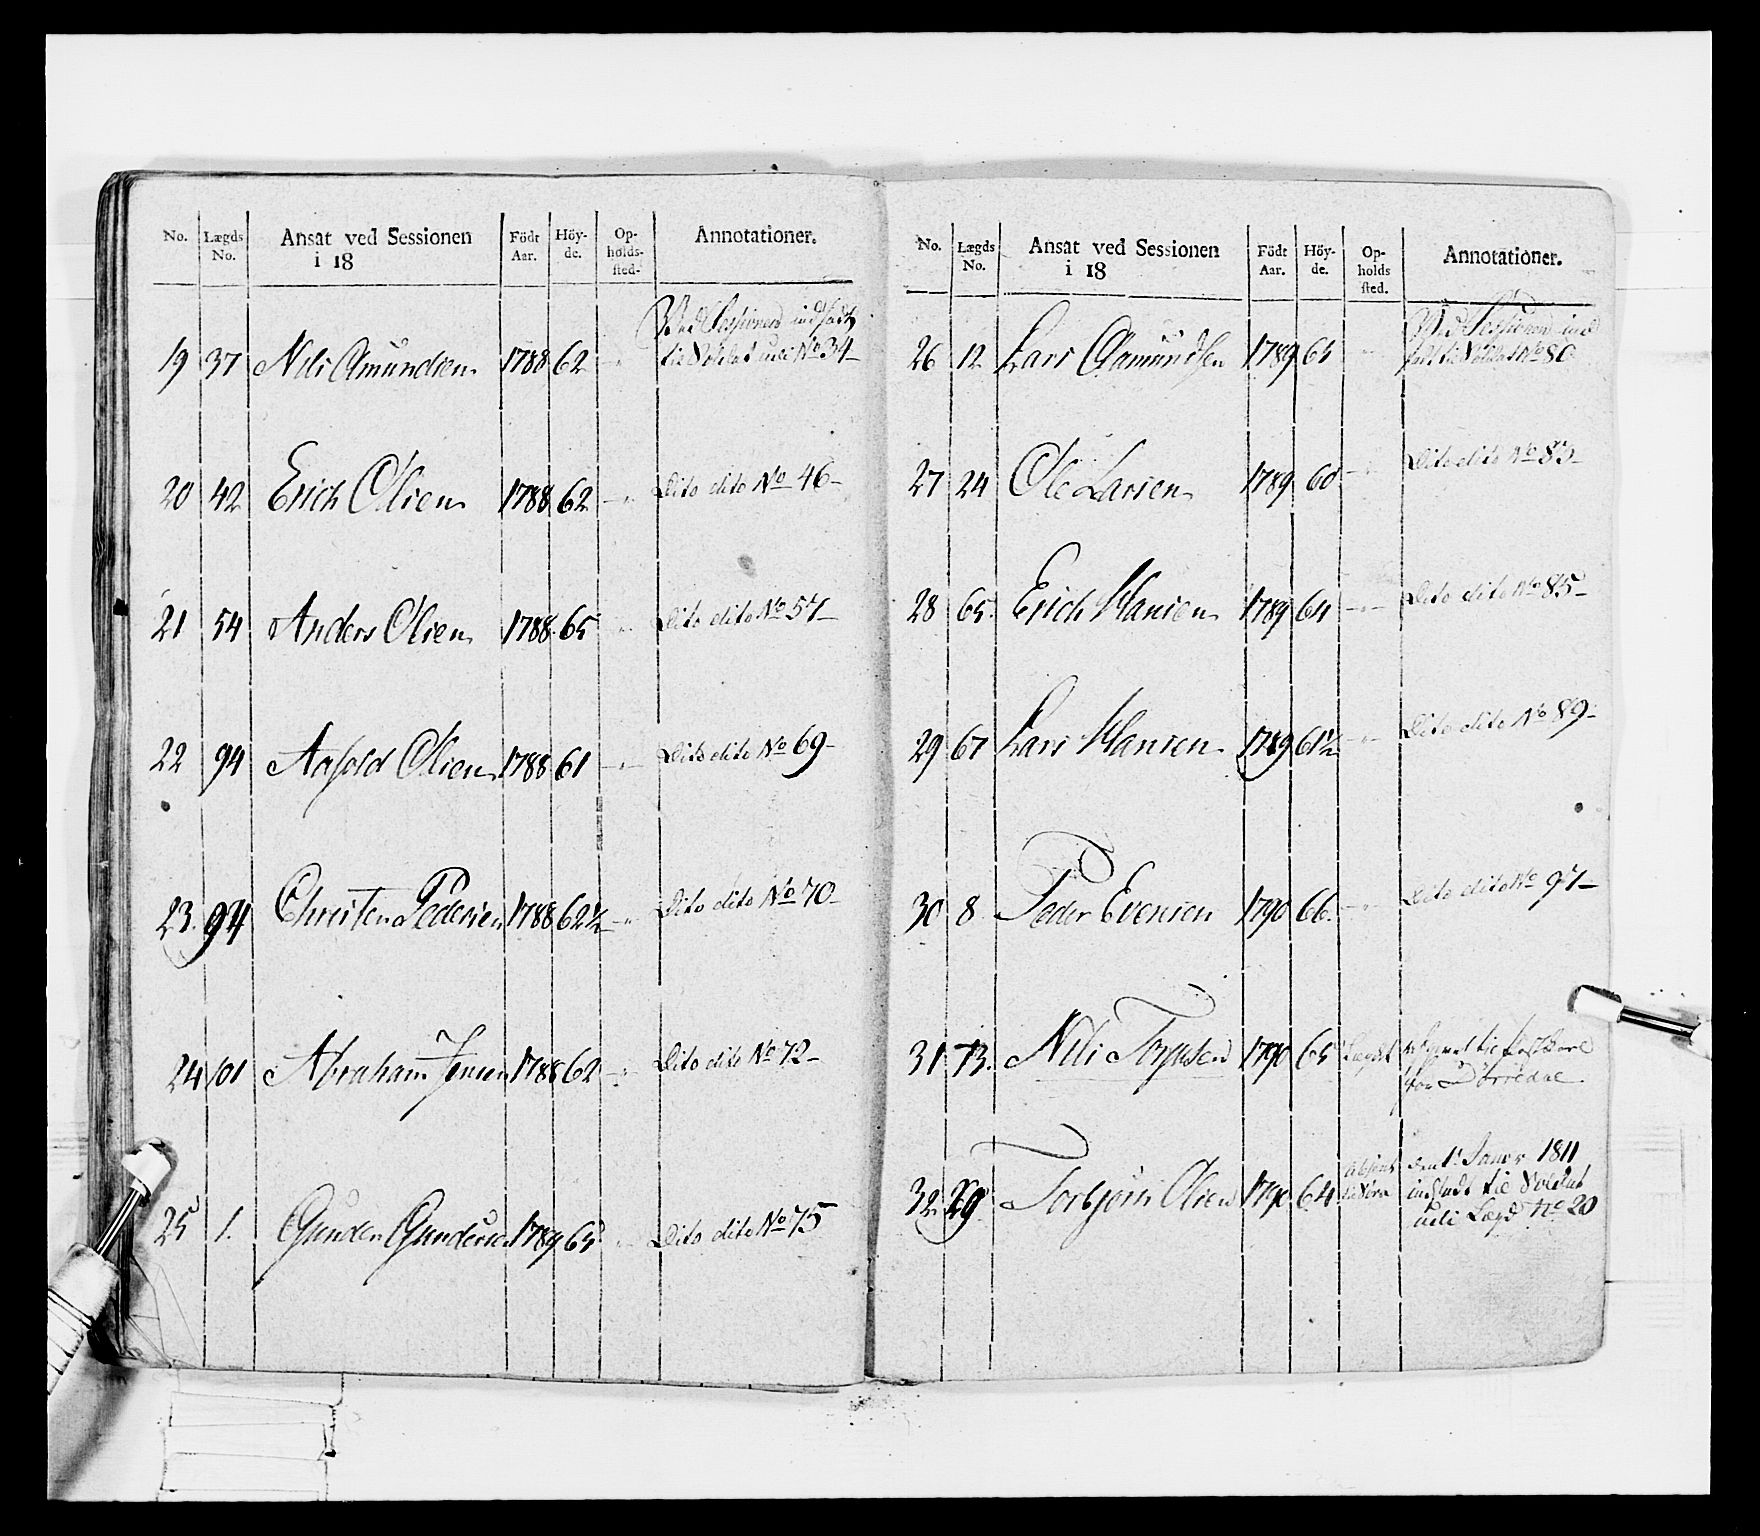 No. Lægds No. Ansat ved Sessionen i 18 Födt Aar. Höy-de. Op-holds-sted. Annotationer.
Ved Sessionen indsadt
19 37 Nils Amundsen 1788 62 " til Soldat udi No 34
20 42 Erich Olsen 1788 62 " Dito dito No 46
21 54 Anders Olsen 1788 65 " Dito dito No 57
22 94 Olsen 1788 61 " Dito dito No 69
23. 94 Christen Pedersen 1788 62½ " Dito dito No 70
24 101 Abraham Jensen 1788 62 " Dito dito No 72
25 1. Gunder Gundersen 1789 65 " Dito dito No 75
No. Lægds No. Ansat ved Sessionen i 18 Födt Aar. Höy-de. Op-holds sted. Annotationer.
Ved Sessionen ind
26 12 Lars Aamundsen 1789 " sadt til Soldat No 80
27 24 Ole Larsen 1789 60 " Dito dito No 83
28 65 Erich Hansen 1789 64 " Dito dito No 85
29 67 Lars Hansen 1789 61½ " Dito dito No 89
30 8 Peder Evensen 1790 66 " Dito dito No 97
31 73. Nils 1790 65 Lægdet
absent den 1ste Janvr 1811
32 29 Torbjørn Olsen 1790 64 indsadt til Soldat
udi Lægd No 20